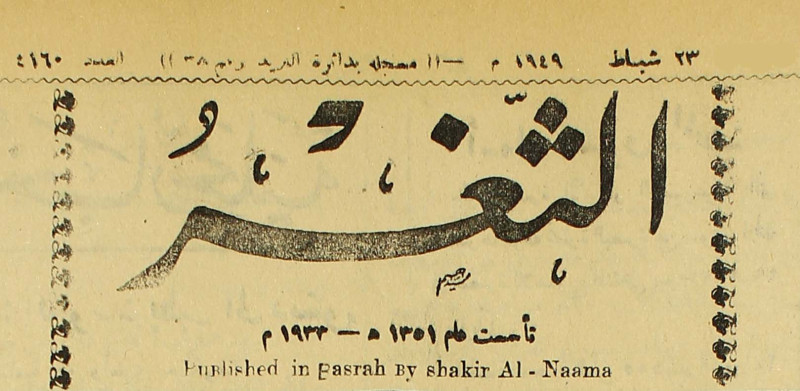 ٢٣ شباط ١٩٤٩ م —(( مسجلة بدائرة البريد رقم ٣٨ )) العدد ٤١٦٠
الثَّغْرُ
تأسست عام ١٣٥١ ه — ١٩٣٣ م
Published in Basrah By shakir Al - Naama